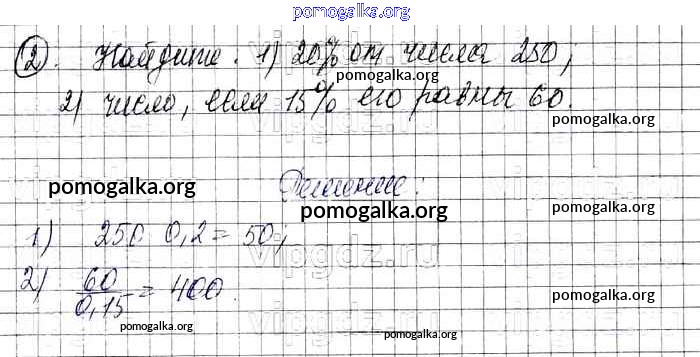 pomogalka.org
2. Найдите: 1) 20% от числа 250;
pomogalka.org
2) число, если 15% его равны 60.
pomogalka.org
pomogalka.org
Решение:
pomogalka.org
1) 250 0,2 = 50;
vipgdz.ru
2) 60/0,15 = 400.
pomogalka.org
pomogalka.org
pomogalka.org